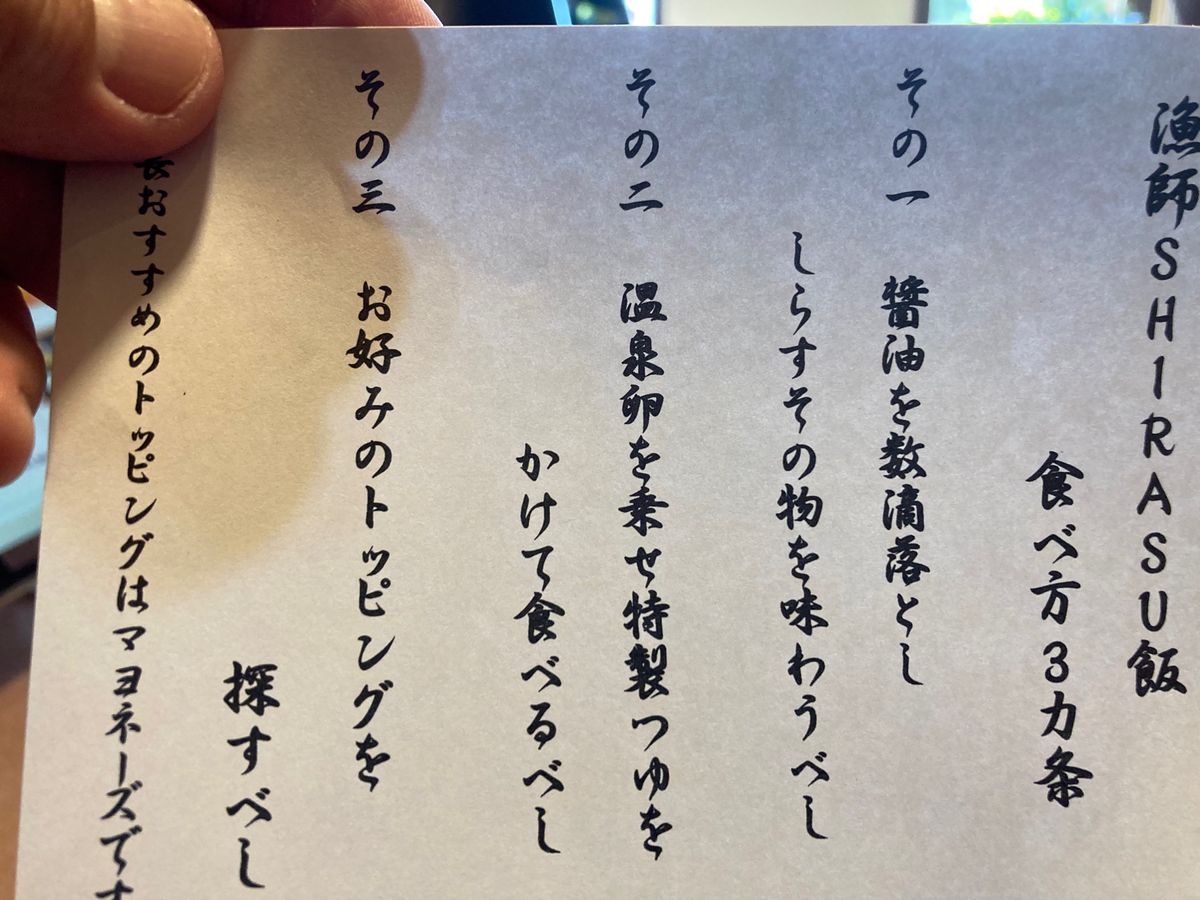 漁師SHIRASU飯
食べ方3カ条
その一 醤油を数滴落とし
しらすその物を味わうべし
その二 温泉卵を乗せ特製つゆを
かけて食べるべし
その三 お好みのトッピングを
探すべし
長おすすめのトッピングはマヨネーズです